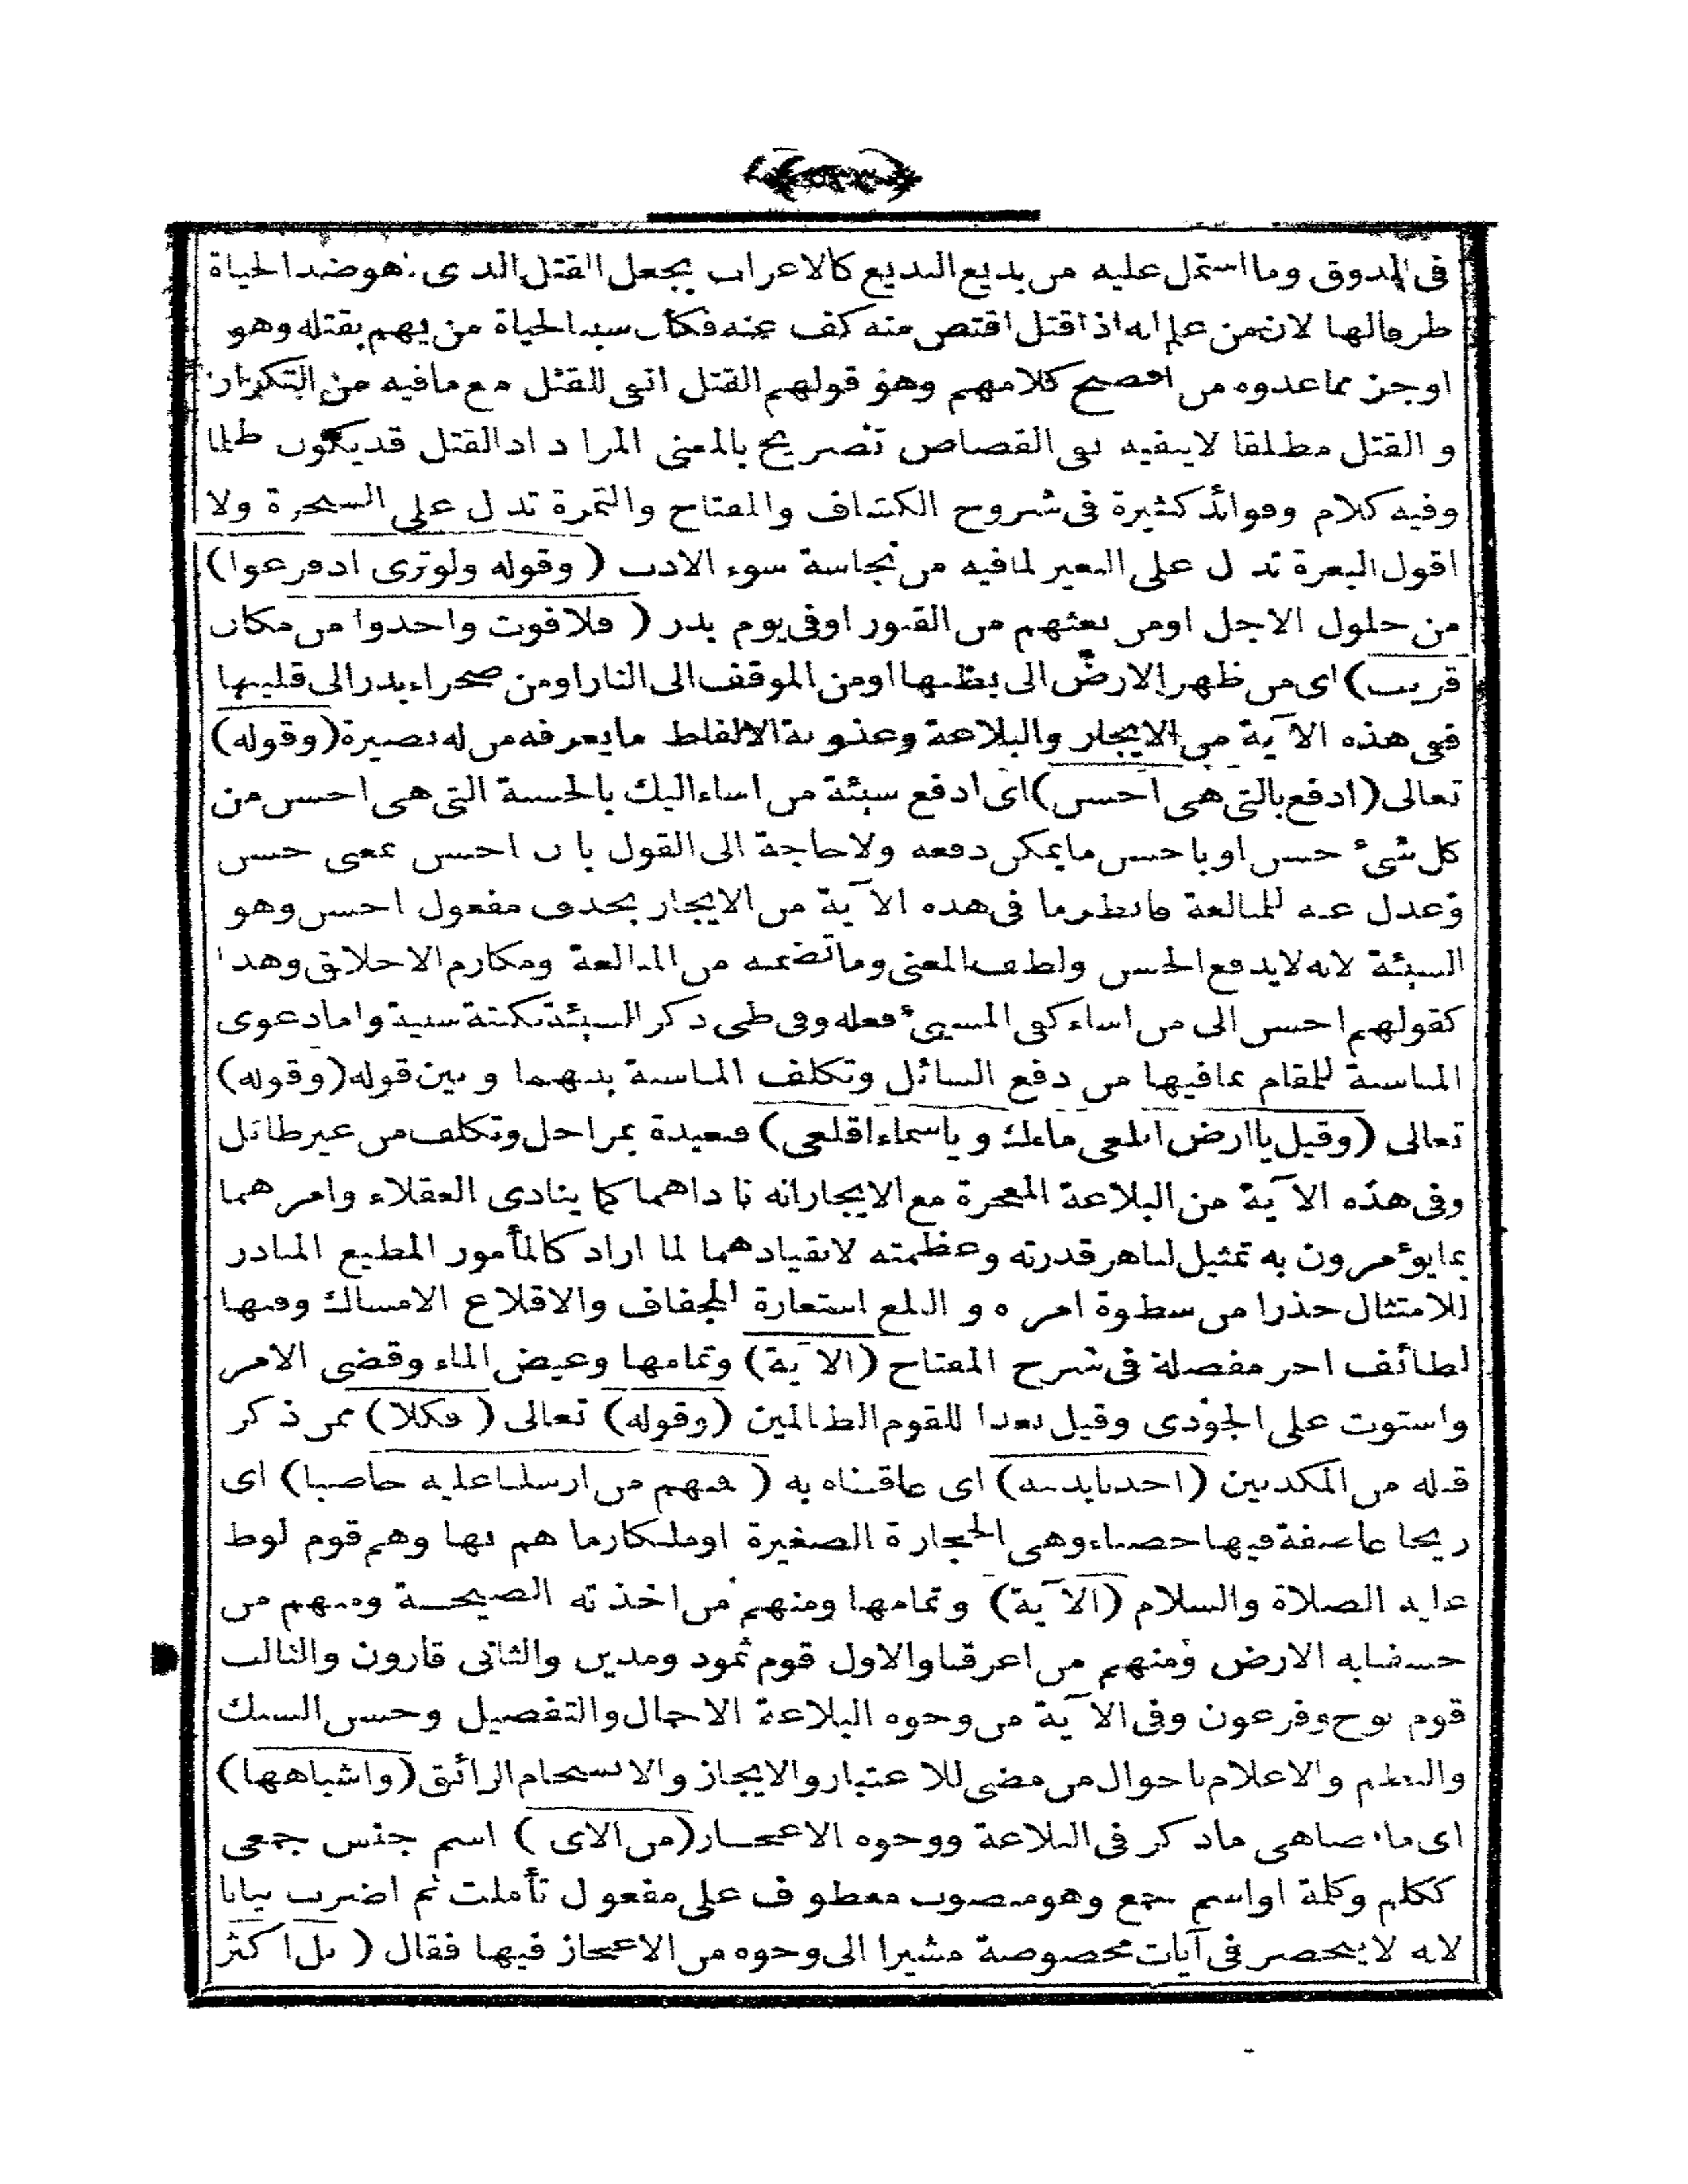 فى المذوق وما اشتمل عليه من بديع البديع كالاغراب بجعل القتل الذى هو ضد الحياة
ظرفا لها لان من علم انه اذا قتل اقتص منه كف عنه فكان سبب الحياة من يهم بقتله وهو
اوجز مما عدوه من افصح كلامهم وهو قولهم القتل انفى للقتل مع ما فيه من التكرار
و القتل مطلقا لا ينفيه بل فى القصاص تصريح بالمعنى المراد اذ القتل قد يكون ظلما
وفيه كلام وفوائد كثيرة فى شروح الكشاف والمفتاح والثمرة تدل على الشجرة ولا
اقول البعرة تدل على البعير لما فيه من نجاسة سوء الادب ( وقوله ولوترى اذ فزعوا )
من حلول الاجل او من بعثهم من القبور او فى يوم بدر ( فلا فوت واخذوا من مكان
قريب ) اى من ظهر الارض الى بطنها او من الموقف الى النار او من صحراء بدر الى قليبها
فى هذه الآية من الايجاز والبلاغة وعذوبة الالفاظ ما يعرفه من له بصيرة ( وقوله )
تعالى ( ادفع بالتى هى احسن ) اى ادفع سيئة من اساء اليك بالحسنة التى هى احسن من
كل شئ حسن او باحسن ما يمكن دفعه ولا حاجة الى القول بان احسن بمعنى حسن
وعدل عنه للمبالغة فانظر ما فى هذه الآية من الايجاز بحذف مفعول احسن وهو
السيئة لانه لا يدفع الحسن ولطف المعنى وما تضمنه من المبالغة ومكارم الاخلاق وهذا
كقولهم احسن الى من اساء كفى المسيئ فعله وفى طى ذكر السيئة نكتة سنية واما دعوى
المناسبة للمقام بما فيها من دفع السائل وتكلف المناسبة بينهما وبين قوله ( وقوله )
تعالى ( وقيل ياارض ابلعى ماءك وياسماء اقلعى ) فبعيدة بمراحل وتكلف من غير طائل
وفى هذه الآية من البلاغة المعجزة مع الايجاز انه ناداهما كما ينادى العقلاء وامرهما
بما يؤمرون به تمثيل لباهر قدرته وعظمته لانقيادهما لما اراد كالمأمور المطيع المبادر
للامتثال حذرا من سطوة امره و البلع استعارة للجفاف والاقلاع الامساك وفيها
لطائف اخر مفصلة فى شرح المفتاح ( الآية ) وتمامها وغيض الماء وقضى الامر
واستوت على الجودى وقيل بعدا للقوم الظالمين ( وقوله ) تعالى ( فكلا ) ممن ذكر
قبله من المكذبين ( اخذنا بذنبه ) اى عاقبناه به ( فمنهم من ارسلنا عليه حاصبا ) اى
ريحا عاصفة فيها حصباء وهى الحجارة الصغيرة او ملكا رماهم بها وهم قوم لوط
عليه الصلاة والسلام ( الآية ) وتمامها ومنهم من اخذته الصيحة ومنهم من
خسفنا به الارض ومنهم من اغرقنا والاول قوم ثمود ومدين والثانى قارون والثالث
قوم نوح وفرعون وفى الآية من وجوه البلاغة الاجمال والتفصيل وحسن السبك
والنظم والاعلام باحوال من مضى للاعتبار والايجاز والانسجام الرائق ( واشباهها )
اى ما يضاهى ما ذكر فى البلاغة ووجوه الاعجاز ( من الاى ) اسم جنس جمعى
ككلم وكلمة او اسم جمع وهو منصوب معطوف على مفعول تأملت ثم اضرب بيانا
لانه لا ينحصر فى آيات مخصوصة مشيرا الى وجوه من الاعجاز فيها فقال ( بل اكثر